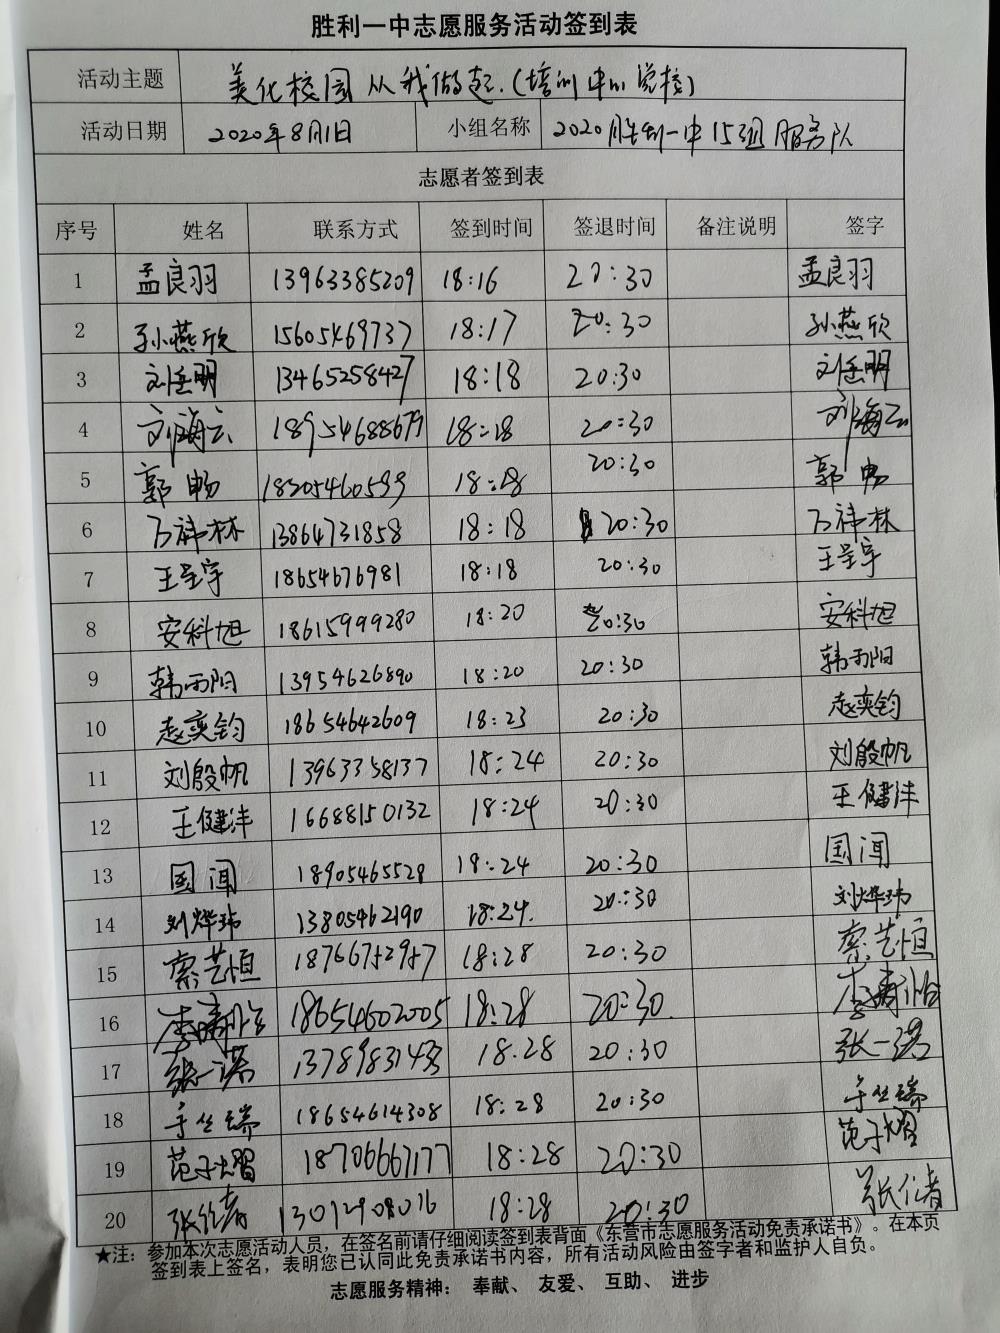 胜利一中志愿服务活动签到表
活动主题 美化校园从我做起.(培训中心党校)
活动日期 2020年8月1日 小组名称 2020胜利一中15组服务队
志愿者签到表
序号 姓名 联系方式 签到时间 签退时间 备注说明 签字
1 孟良羽 13963385209 18:16 20:30 孟良羽
2 孙燕欣 15605469737 18:17 20:30 孙燕欣
3 刘岳明 13465258427 18:18 20:30 刘岳明
4 刘海云 18954688679 18:18 20:30 刘海云
5 郭畅 18:18 20:30 郭畅
6 林 13864731858 18:18 20:30 林
7 王呈宇 18654676981 18:18 20:30 王呈宇
8 安科旭 18615999280 18:20 20:30 安科旭
9 韩雨阳 13954626890 18:20 20:30 韩雨阳
10 赵奕钧 18654642609 18:23 20:30 赵奕钧
11 刘殷帆 13963358137 18:24 20:30 刘殷帆
12 王健沣 16688150132 18:24 20:30 王健沣
13 国闻 18905465528 18:24 20:30 国闻
14 刘烨玮 13805462190 18:24. 20:30 刘烨玮
15 索艺恒 18766752957 18:28 20:30 索艺恒
16 李 怡 18654602005 18:28 20:30. 李 怡
17 张一诺 18.28 20:30 张一诺
18 瑞 18654614308 18:28 20:30 瑞
19 范子熠 18706667177 18:28 20:30 范子熠
20 张 13012908016 18:28 20:30 张
★注: 参加本次志愿活动人员，在签名前请仔细阅读签到表背面《东营市志愿服务活动免责承诺书》。在本页
签到表上签名，表明您已认同此免责承诺书内容，所有活动风险由签字者和监护人自负。
志愿服务精神： 奉献、 友爱、 互助、 进步